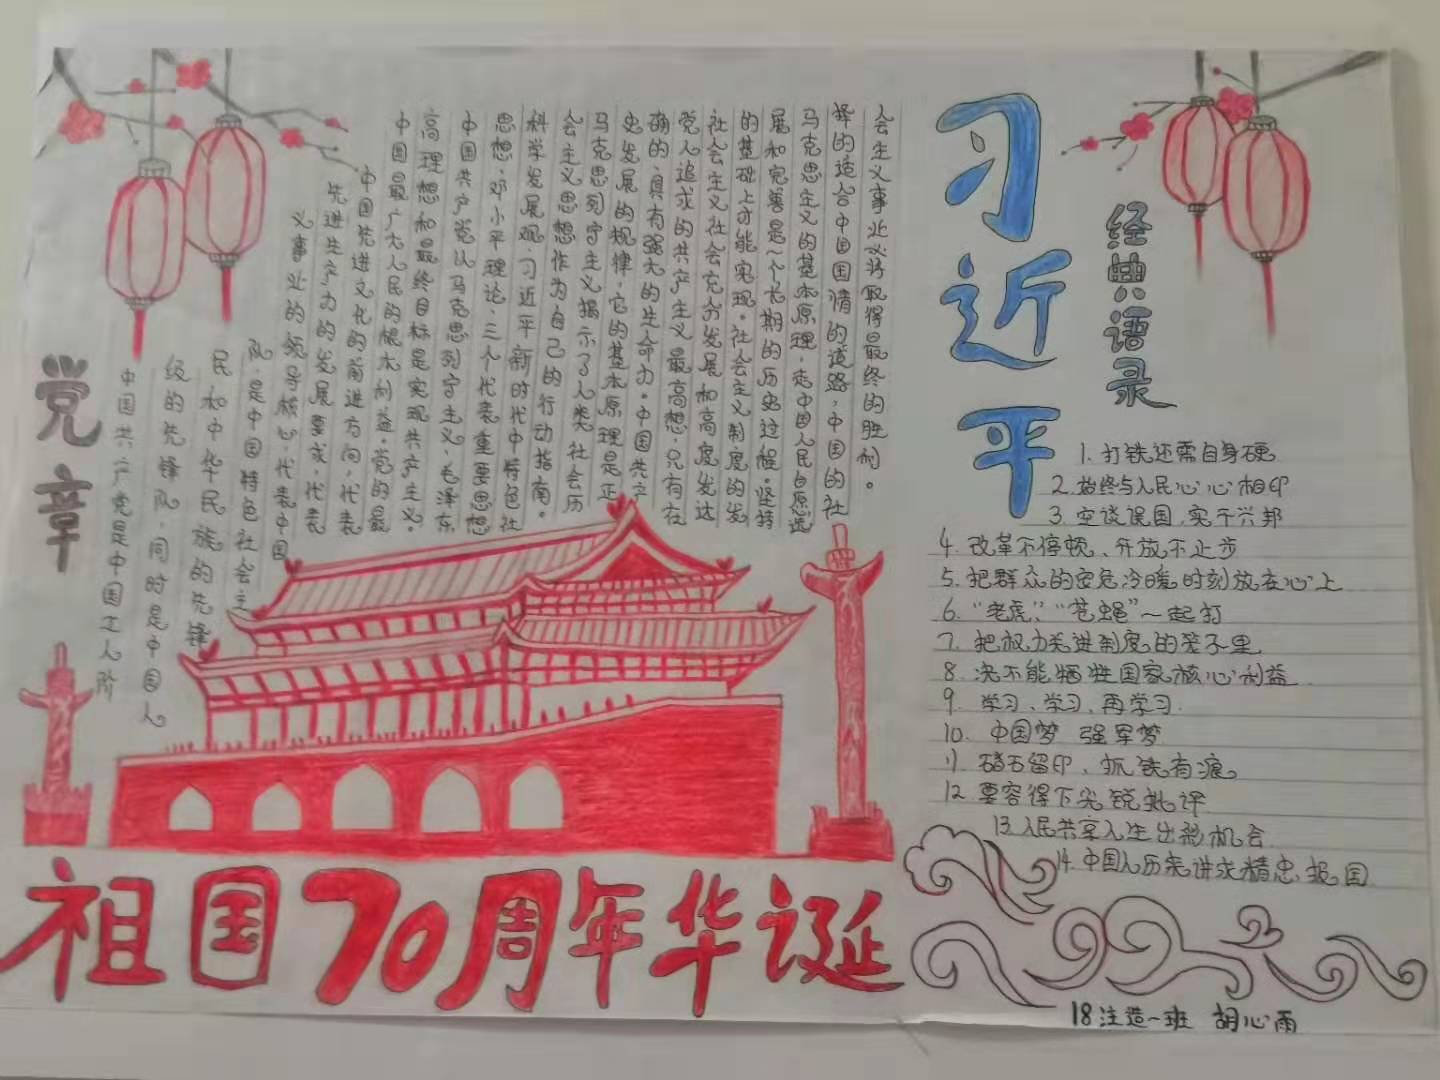 党章
中国共产党是中国工人阶
级的先锋队,同时是中国人
民和中华民族的先锋
队,是中国特色社会主
义事业的领导核心,代表中国
先进生产力的发展要求,代表
中国先进文化的前进方向代表
中国最广大人民的根本利益。党的最
高理想和最终目标是实现共产主义。
中国共产党以马克思列宁主义、毛泽东
思想、邓小平理论、三个代表重要思想
科学发展观、习近平新时代中特色社
会主义思想作为自己的行动指南。
马克思列宁主义揭示了人类社会历
史发展的规律,它的基本原理是正
确的,具有强大的生命力。中国共产
党人追求的共产主义最高想,只有在
社会主义社会充分发展和高度发达
的基础上才能实现。社会主义制度的发
展和完善是一个长期的历史过程。坚持
马克思主义的基本原理,走中国人民自愿选
择的适合中国国情的道路,中国的社
会主义事业必将取得最终的胜利。
习近平
经典语录
1.打铁还需自身硬
2.始终与人民心心相印
3.空谈误国,实干兴邦
4.改革不停顿、开放不止步
5.把群众的安危冷暖时刻放在心上
6.“老虎”,“苍蝇”一起打
7.把权力关进制度的笼子里
8.决不能牺牲国家核心利益
9.学习、学习、再学习
10.中国梦 强军梦
11.踏石留印、抓铁有痕
12.要容得下尖锐批评
13.人民共享人生出彩机会
14.中国人历来讲求精忠报国
祖国70周年华诞
18注造一班 胡心雨